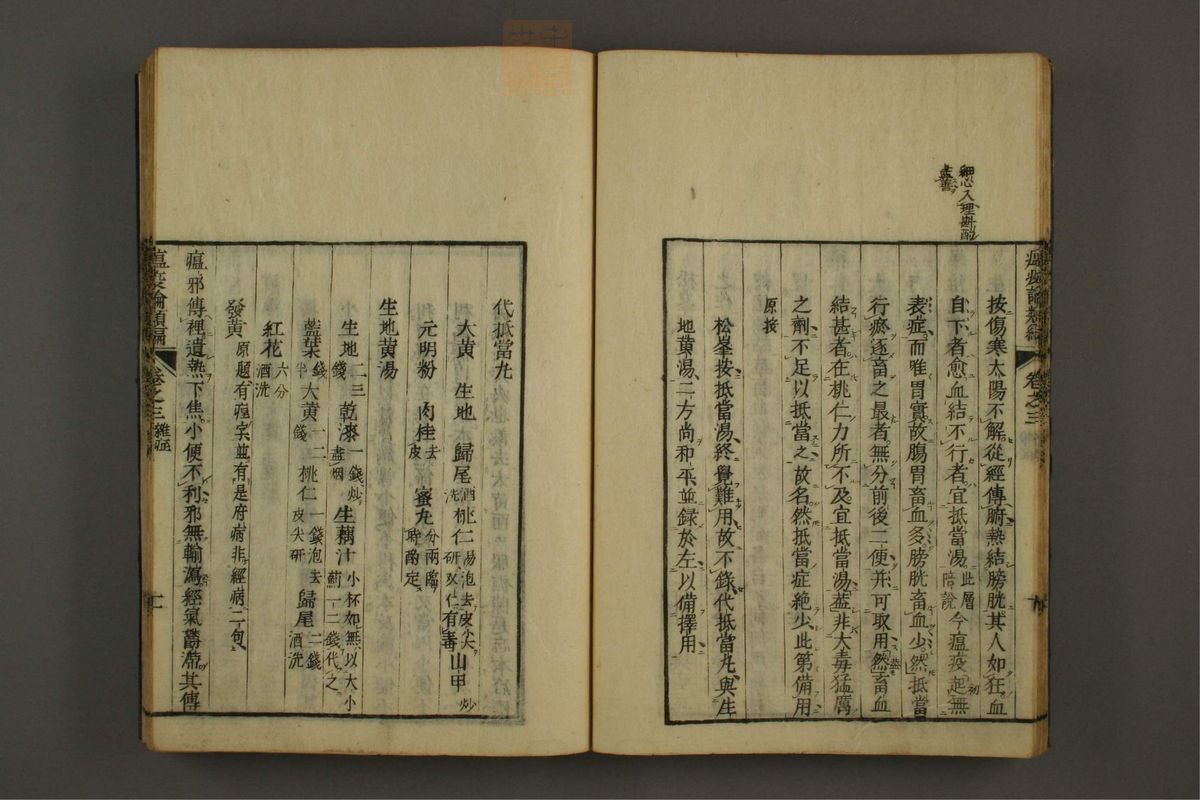 細心入理斟酌
盡善
瘟疫論類編
卷之三
九
按傷寒太陽不解從經傳腑熱結膀胱其人如狂血
自下者愈血結不行者宜抵當湯此層陪說今瘟疫起初無
表症而唯胃實故腸胃畜血多膀胱畜血少然抵當湯
行瘀逐畜之最者無分前後二便并可取用然蓋畜血
結甚者在桃仁力所不及宜抵當湯蓋非大毒猛厲
之劑不足以抵當之故名然抵當症絕少此第備用
原按
松峯按抵當湯終覺難用故不錄代抵當丸與生
地黃湯二方尚和平並録於左以備擇用
代抵當丸
大黃 生地 歸尾酒洗 桃仁湯泡去皮尖研双仁有毒 山甲炒
元明粉 肉桂去皮 蜜丸分兩臨時酌定
生地黃湯
生地二三錢 乾漆一錢炒盡烟 生藕汁小杯如無以大小薊一二錢代之
藍葉錢半 大黃一二錢 桃仁一錢泡去皮尖研 歸尾二錢酒洗
紅花六分酒洗
發黃原題有疸字並有是府病非經病二句
瘟邪傳裡遺熱下焦小便不利邪無輸瀉經氣鬱滯其傳
瘟疫論類編
卷之三雜症
十